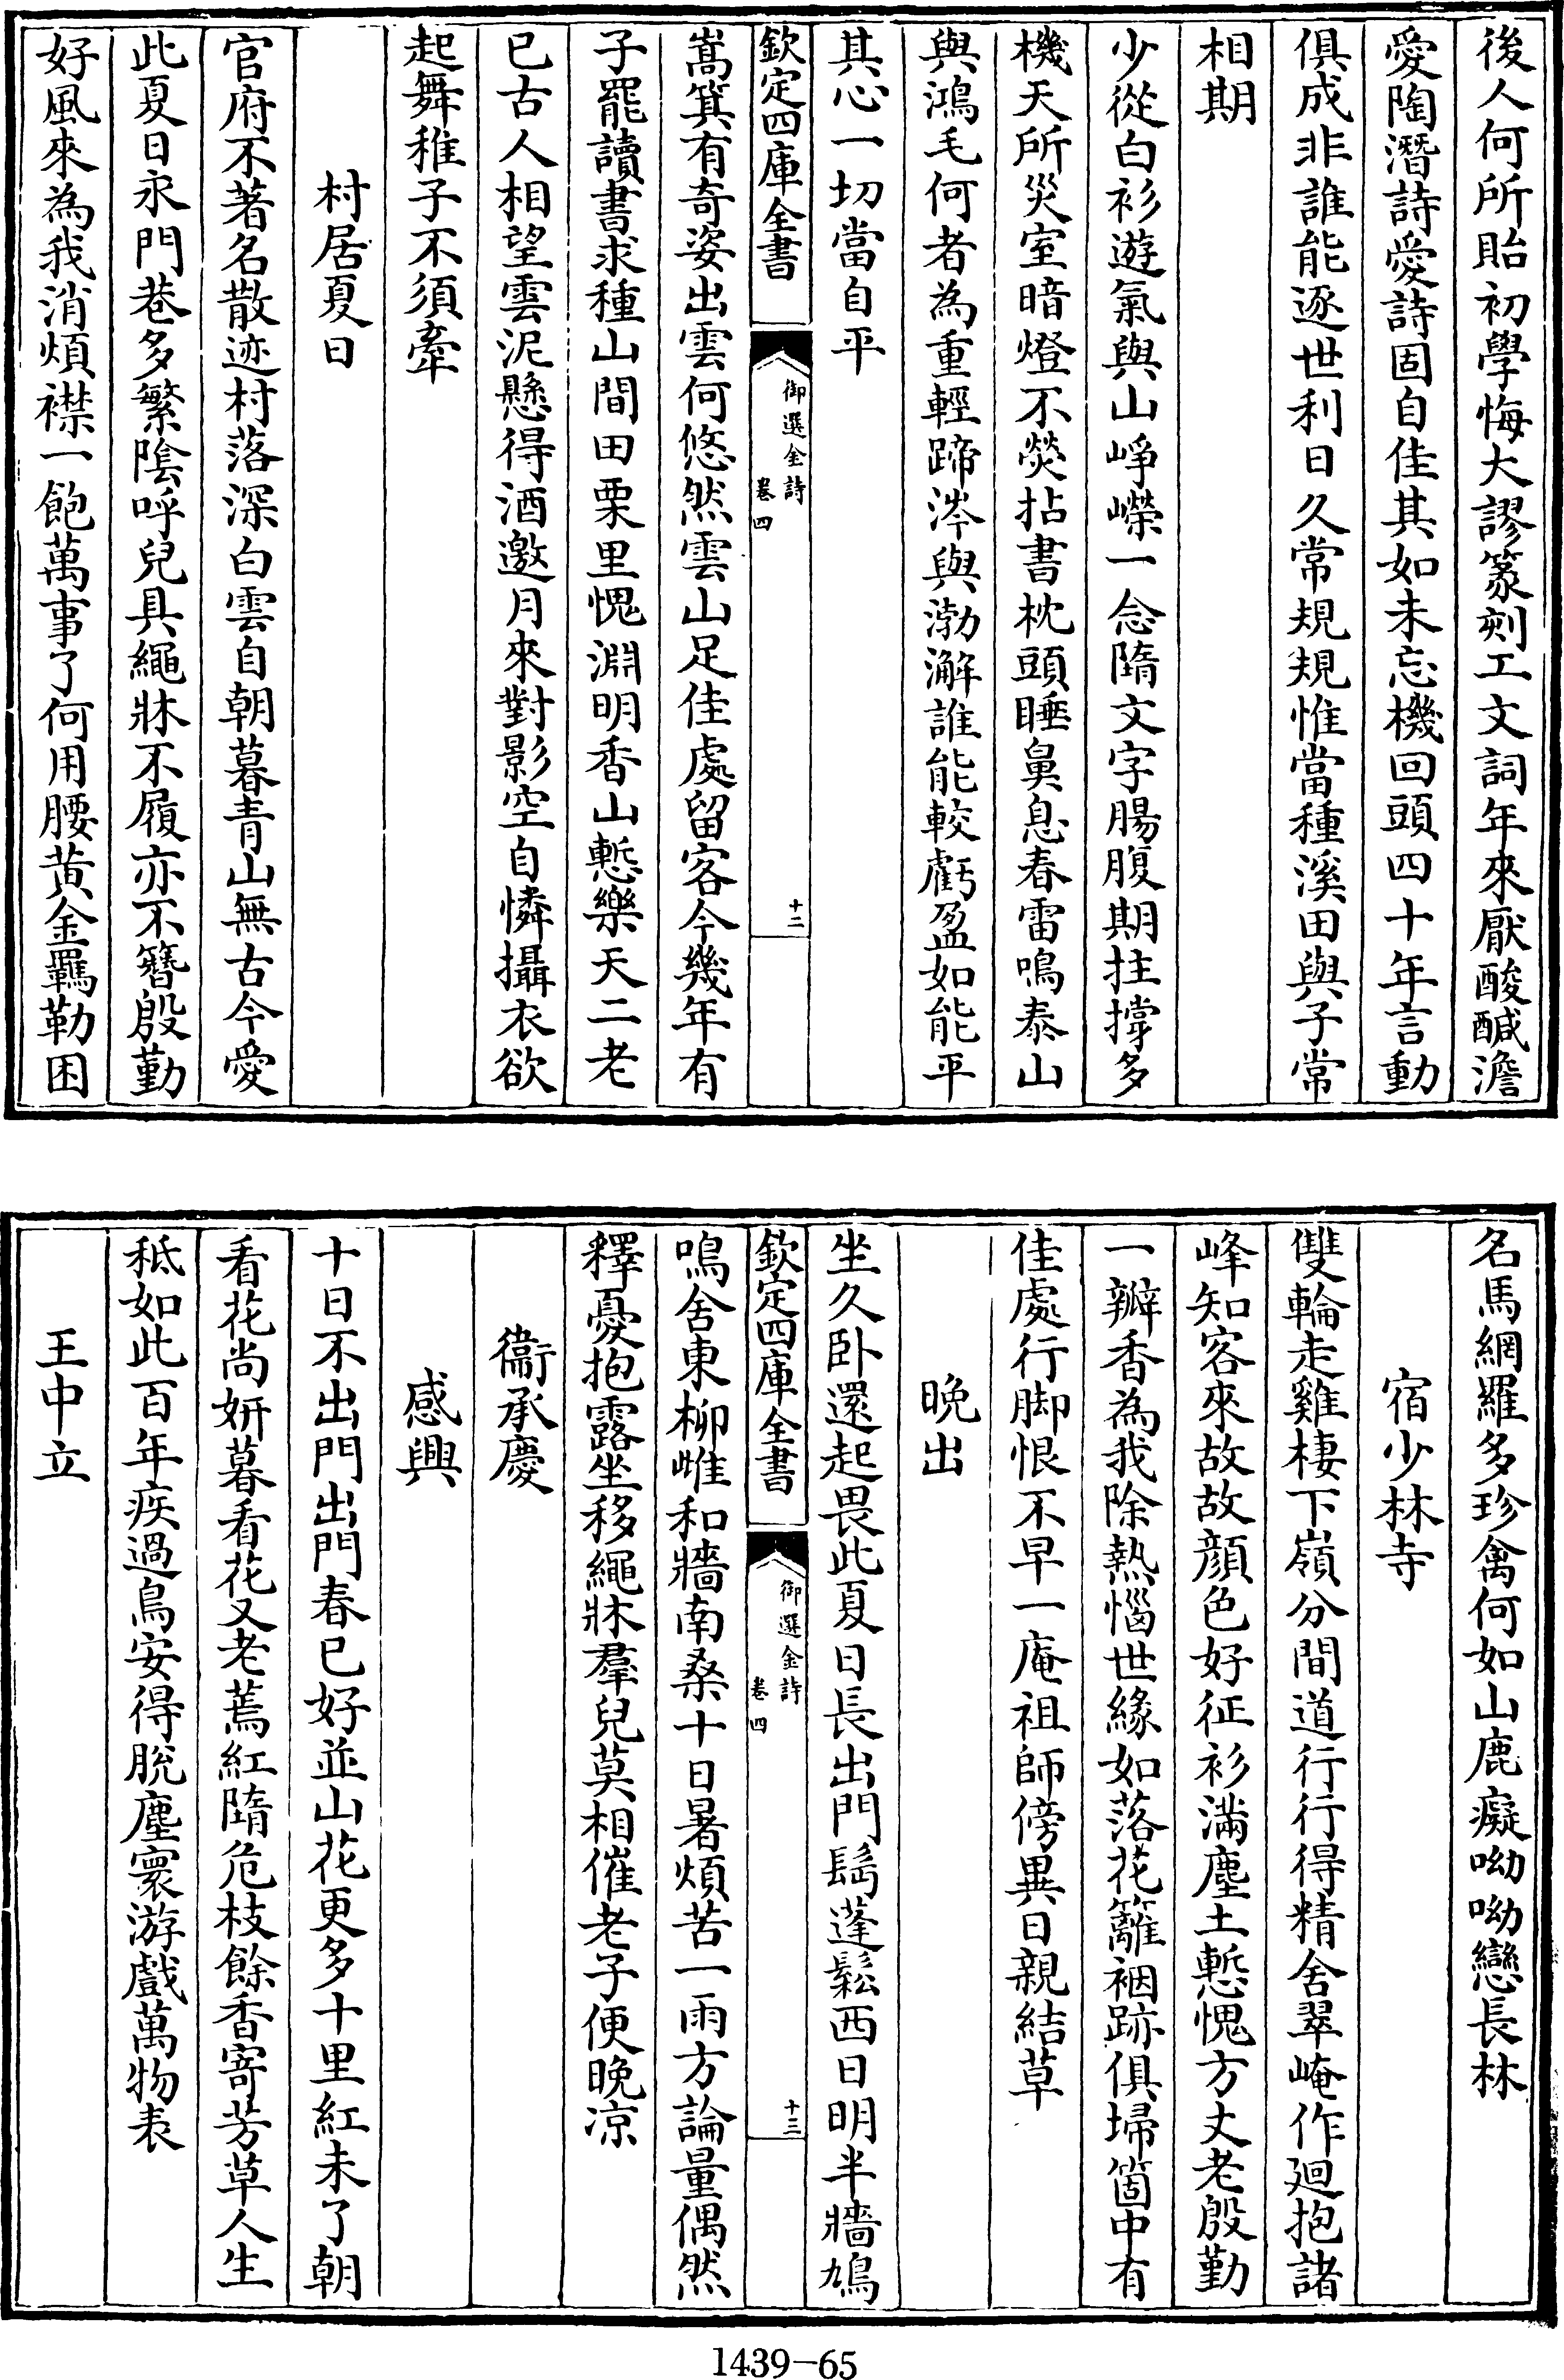 後人何所貽初學悔大謬篆刻工文詞年來厭酸醎澹
愛陶潛詩愛詩固自佳其如未忘機回頭四十年言動
俱成非誰能逐世利日久常規規惟當種溪田與子常
相期
少從白衫遊氣與山崢嶸一念隋文字腸腹期拄撐多
機天所災室暗燈不熒拈書枕頭睡鼻息春雷鳴泰山
與鴻毛何者為重輕蹄涔與渤澥誰能較虧盈如能平
其心一切當自平
欽定四庫全書
御選金詩
卷四
十二
嵩箕有奇姿出雲何悠然雲山足佳處留客今幾年有
子罷讀書求種山間田栗里愧淵明香山慙樂天二老
已古人相望雲泥懸得酒邀月來對影空自憐攝衣欲
起舞稚子不須牽
村居夏日
官府不著名散迹村落深白雲自朝暮青山無古今愛
此夏日永門巷多繁陰呼兒具繩牀不履亦不簪殷勤
好風來為我消煩襟一飽萬事了何用腰黄金羈勒困
名馬網羅多珍禽何如山鹿癡呦呦戀長林
宿少林寺
雙輪走雞棲下嶺分間道行行得精舍翠崦作廻抱諸
峰知客來故故顔色好征衫滿塵土慙愧方丈老殷勤
一瓣香為我除熱惱世緣如落花籬裀跡俱埽箇中有
佳處行脚恨不早一庵祖師傍異日親結草
晚出
坐久卧還起畏此夏日長出門髩蓬鬆西日明半牆鳩
欽定四庫全書
御選金詩
卷四
十三
鳴舍東柳雌和牆南桑十日暑煩苦一雨方論量偶然
釋憂抱露坐移繩牀羣兒莫相催老子便晚凉
衞承慶
感興
十日不出門出門春已好並山花更多十里紅未了朝
看花尚妍暮看花又老蔫紅隋危枝餘香寄芳草人生
秪如此百年疾過鳥安得脱塵寰游戲萬物表
王中立
1439-65